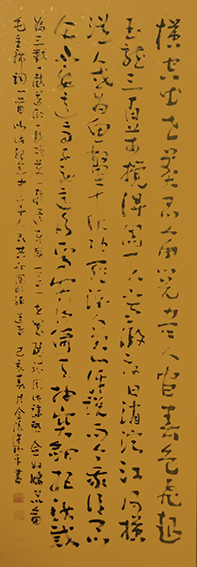 橫空出世莽昆仑阅尽人间春色飞起
玉龙三百万搅得周天寒彻夏日消溶江河横
溢人或为鱼鳖千秋功罪谁人曾与评说而今我谓昆
仑不要这高不要这多雪安得倚天抽宝剑把汝裁
为三截一截遗欧一截赠美一截还东国太平世界环球同此凉热念奴娇昆仑
毛主席词一首以此纪念中华人民共和国成立 己亥夏月 书